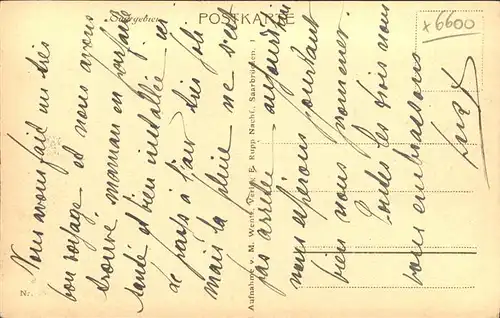 Saargebiet
POSTKARTE
x 6600
Nous avons fait un très
bon voyage et nous avons
trouvé maman en parfaite
santé et bien installée ; ici
le pays a l'air très joli
mais la pluie ne s'est
pas arrêtée aujourd'hui
nous espérons pourtant
bien nous promener.
Toutes les trois nous
vous embrassons
Aufnahme v. M. Wentz, Verlag E. Rupp Nachf., Saarbrücken. 1
Nr.